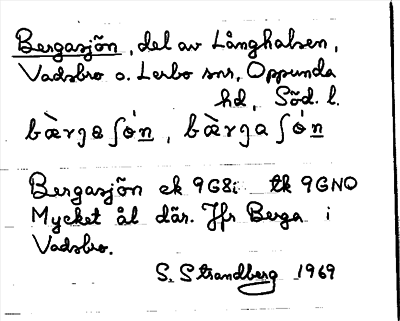 Bergasjön, del av Långhalsen,
Vadsbro o. Lerbo snr, Oppunda
hd, Söd. l.
bæ̀rgaʃó̇n, bæ̀rgaʃó̇n
Bergasjön ek 9G8i tk 9GNO
Mycket ål där. Jfr Berga i
Vadsbro.
S. Strandberg 1969